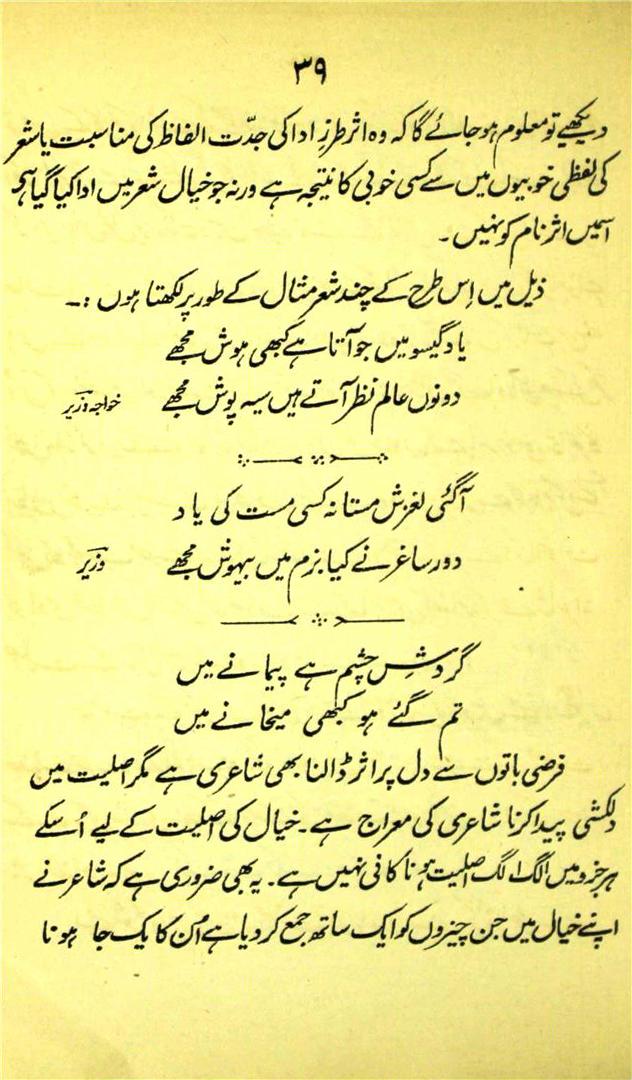 ۳۹
دیکھیے تو معلوم ہو جائے گا کہ وہ اثر طرزِ ادا کی جدّت الفاظ کی مناسبت یا شعر
کی لفظی خوبیوں میں سے کسی خوبی کا نتیجہ ہے ورنہ جو خیال شعر میں ادا کیا گیا ہے
اسمیں اثر نام کو نہیں۔
ذیل میں اِس طرح کے چند شعر مثال کے طور پر لکھتا ہوں :۔
یاد گیسو میں جو آتا ہے کبھی ہوش مجھے
دونوں عالم نظر آتے ہیں سیہ پوش مجھے خواجہ وزیر
آگئی لغزش مستانہ کسی مست کی یاد
دور ساغر نے کیا بزم میں بیہوش مجھے وزیر
گردشِ چشم ہے پیمانے میں
تم گئے ہو کبھی میخانے میں
فرضی باتوں سے دل پر اثر ڈالنا بھی شاعری ہے مگر اصلیت میں
دلکشی پیدا کرنا شاعری کی معراج ہے۔ خیال کی اصلیت کے لیے اُسکے
ہر جزو میں الگ الگ اصلیت ہونا کافی نہیں ہے۔ یہ بھی ضروری ہے کہ شاعر نے
اپنے خیال میں جن چیزوں کو ایک ساتھ جمع کر دیا ہے اُن کا یک جا ہونا